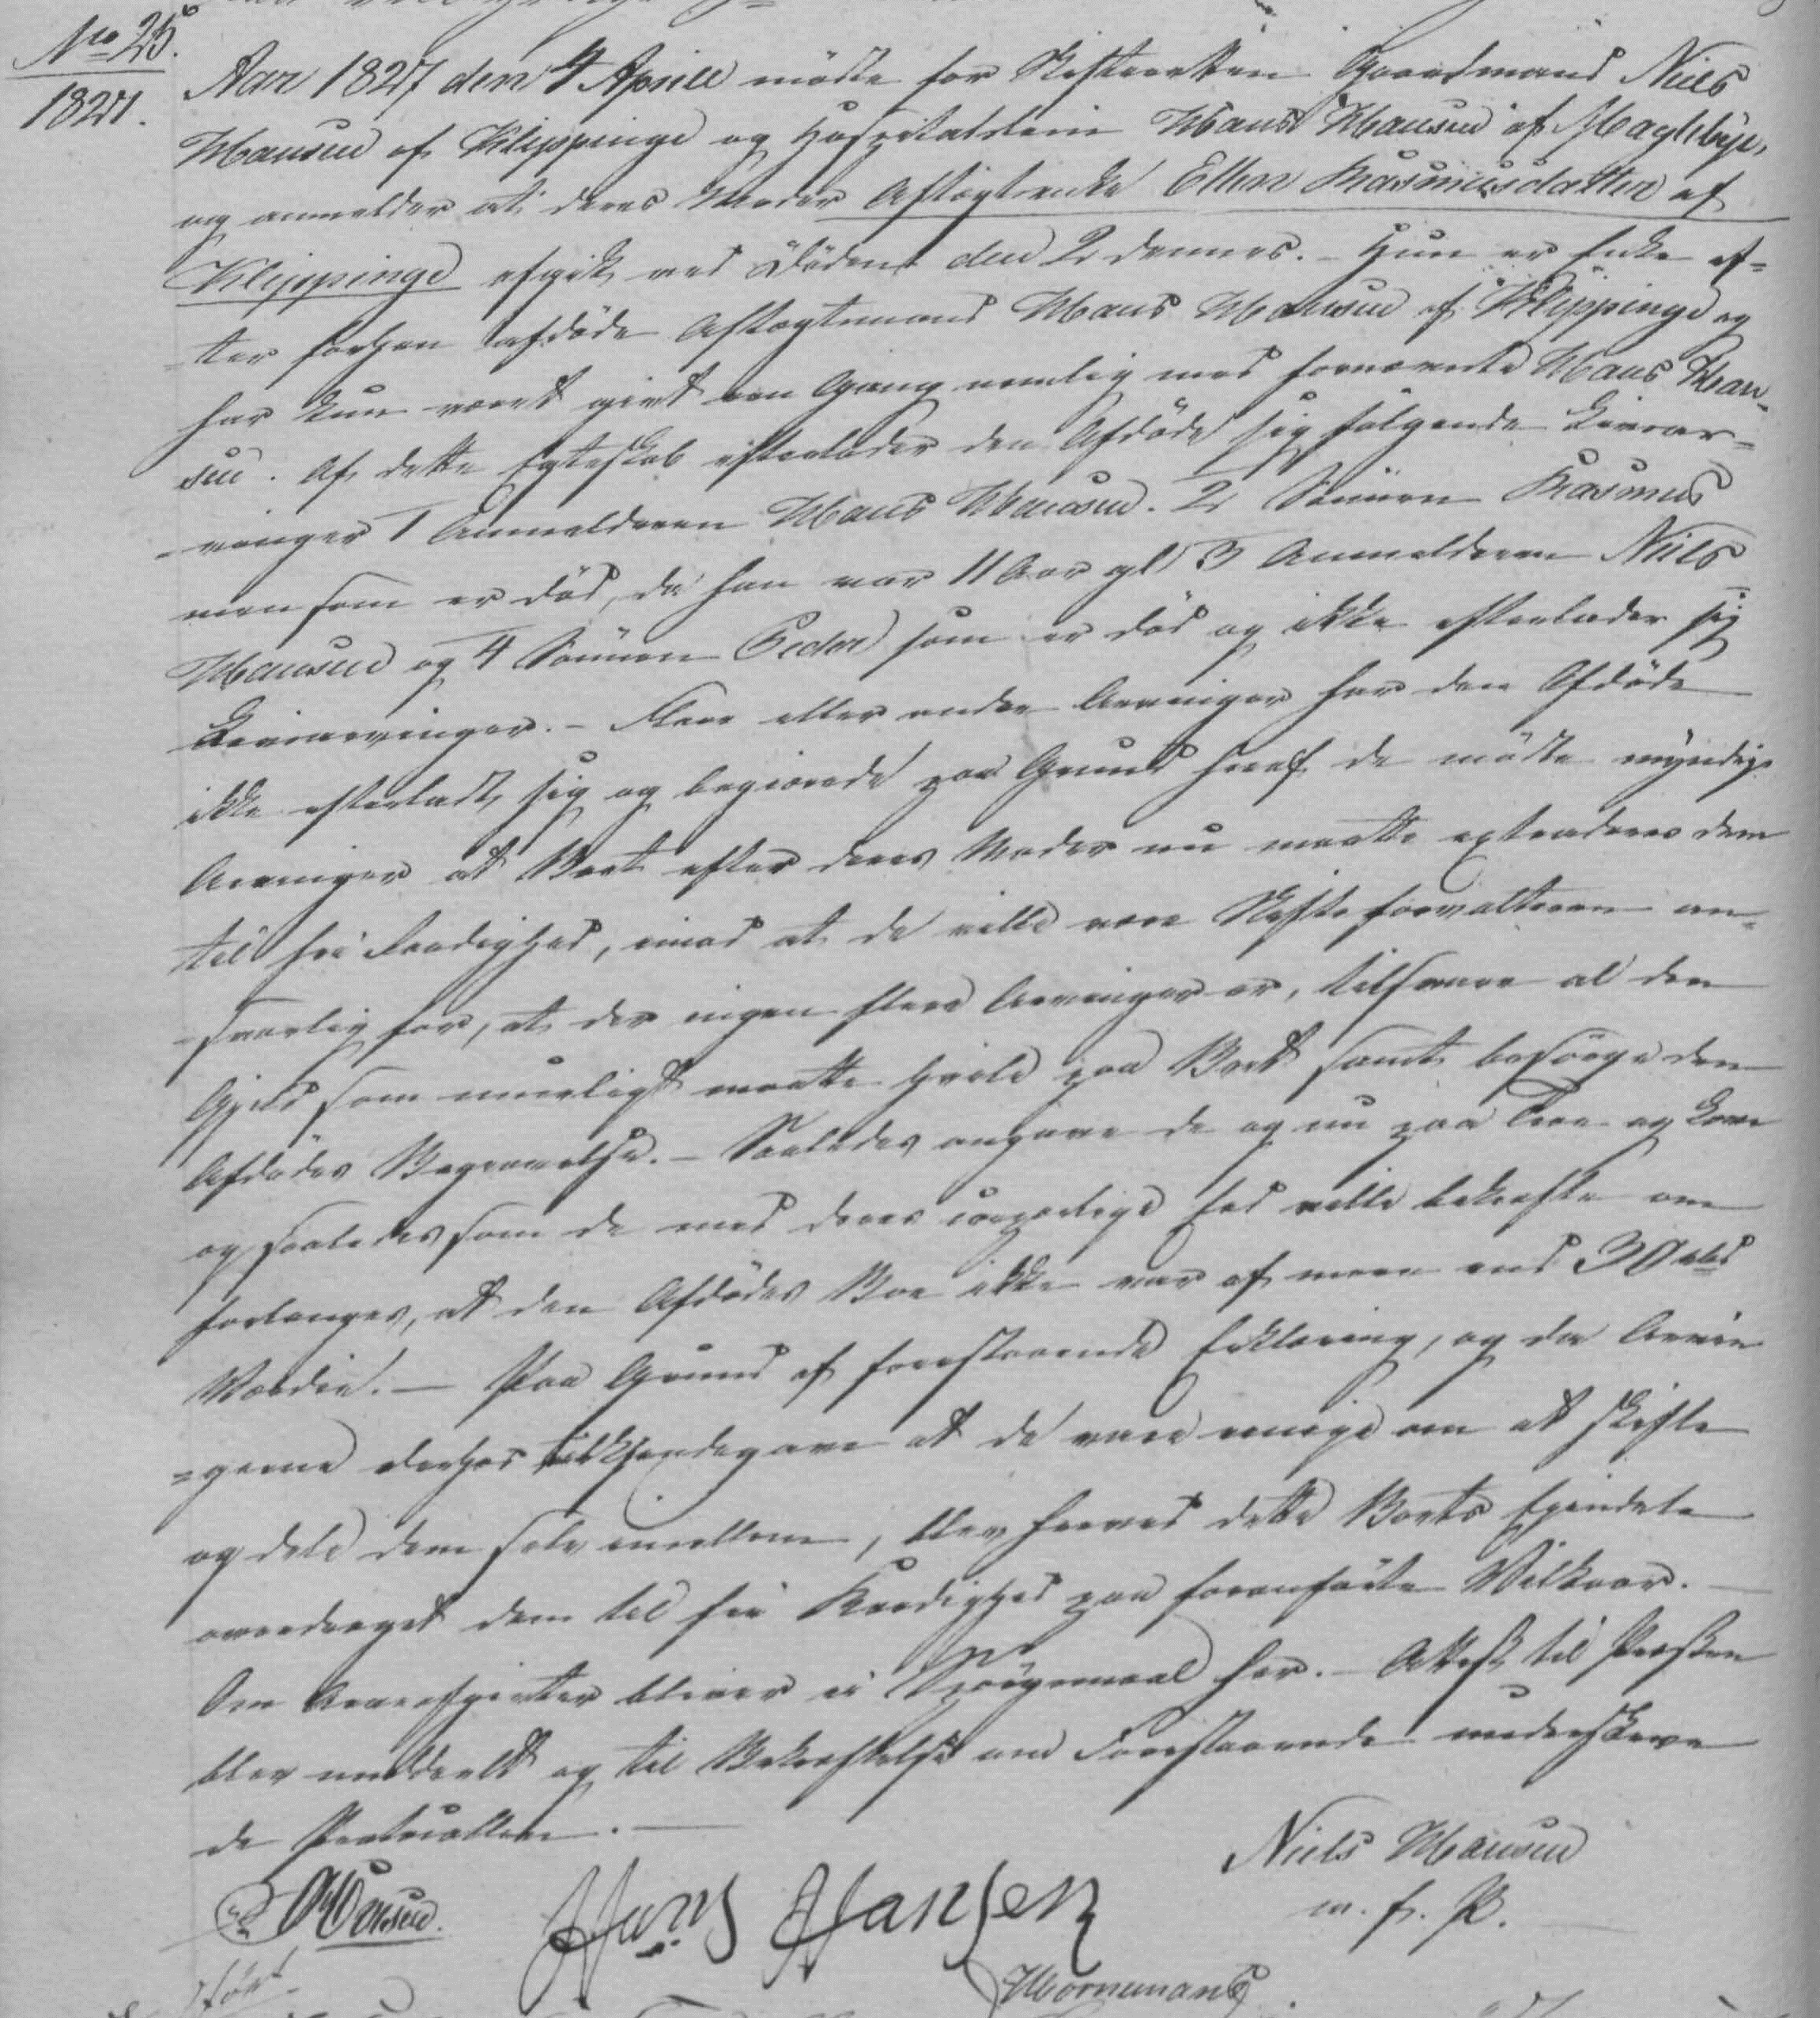 No 25.
1827.
Aar 1827 den 4 Aprill mødte for Skifteretten Gaardmand Niels
Hansen af Klippinge og Hospitalslem Hans Hansen af Maglebye,
og anmelder at deres Moder Aftægtsenke Ellen Rasmusdatter af
Klippinge afgik ved Døden den 2 dennes. – Hun er Enke ef-
-ter forhen afdøde Aftægtsmand Hans Hansen af Klippinge og
har kun været givt een Gang nemlig med fornævnte Hans Han-
sen. Af dette Egteskab efterlader den Afdøde sig følgende Livsar-
-vinger 1 Anmelderen Hans Hansen. 2 Sønnen Rasmus
men som er død, da han var 11 Aar gl 3 Anmelderen Niels
Hansen og 4 Sønnen Peder som er død og ikke efterlader sig
Livsarvinger. – Flere eller andre Arvinger har den Afdøde
ikke efterladt sig og begjærede paa Grund heraf de mødte myndige
Arvinger at Boet efter deres Moder nu maatte extraderes dem
til fri Raadighed, imod at de ville være Skifteforvalteren an-
-svarlig for, at der ingen flere Arvinger er, tilsvare al den
Gjeld som muligt maatte hvile paa Boet samt besørge den
Afdødes Begravelse. – Saaledes angave de og nu paa Troe og Love
og saaledes som de med deres corporlige Eed ville bekræfte om
forlanges, at den Afdødes Boe ikke var af meere end 30 rbd
Værdie. – Paa Grund af forestaaende Erklæring, og da Arvin
-gerne derhos tilkjendegave at de vare enige om at skifte
og dele dem selv imellem, blev herved dette Boets Ejendele
overdraget dem til fri Raadighed paa foranførte Vilkaar. –
Om Arveafgivter bliver ei Spørgsmaal her. – Attest til Præsten
blev meddeelt og til Bekræftelse om Forestaaende underskreve
de Protocollen. –
Niels Hansen
m. f. P.
Hansen.
Hans Hansen
Hornemand